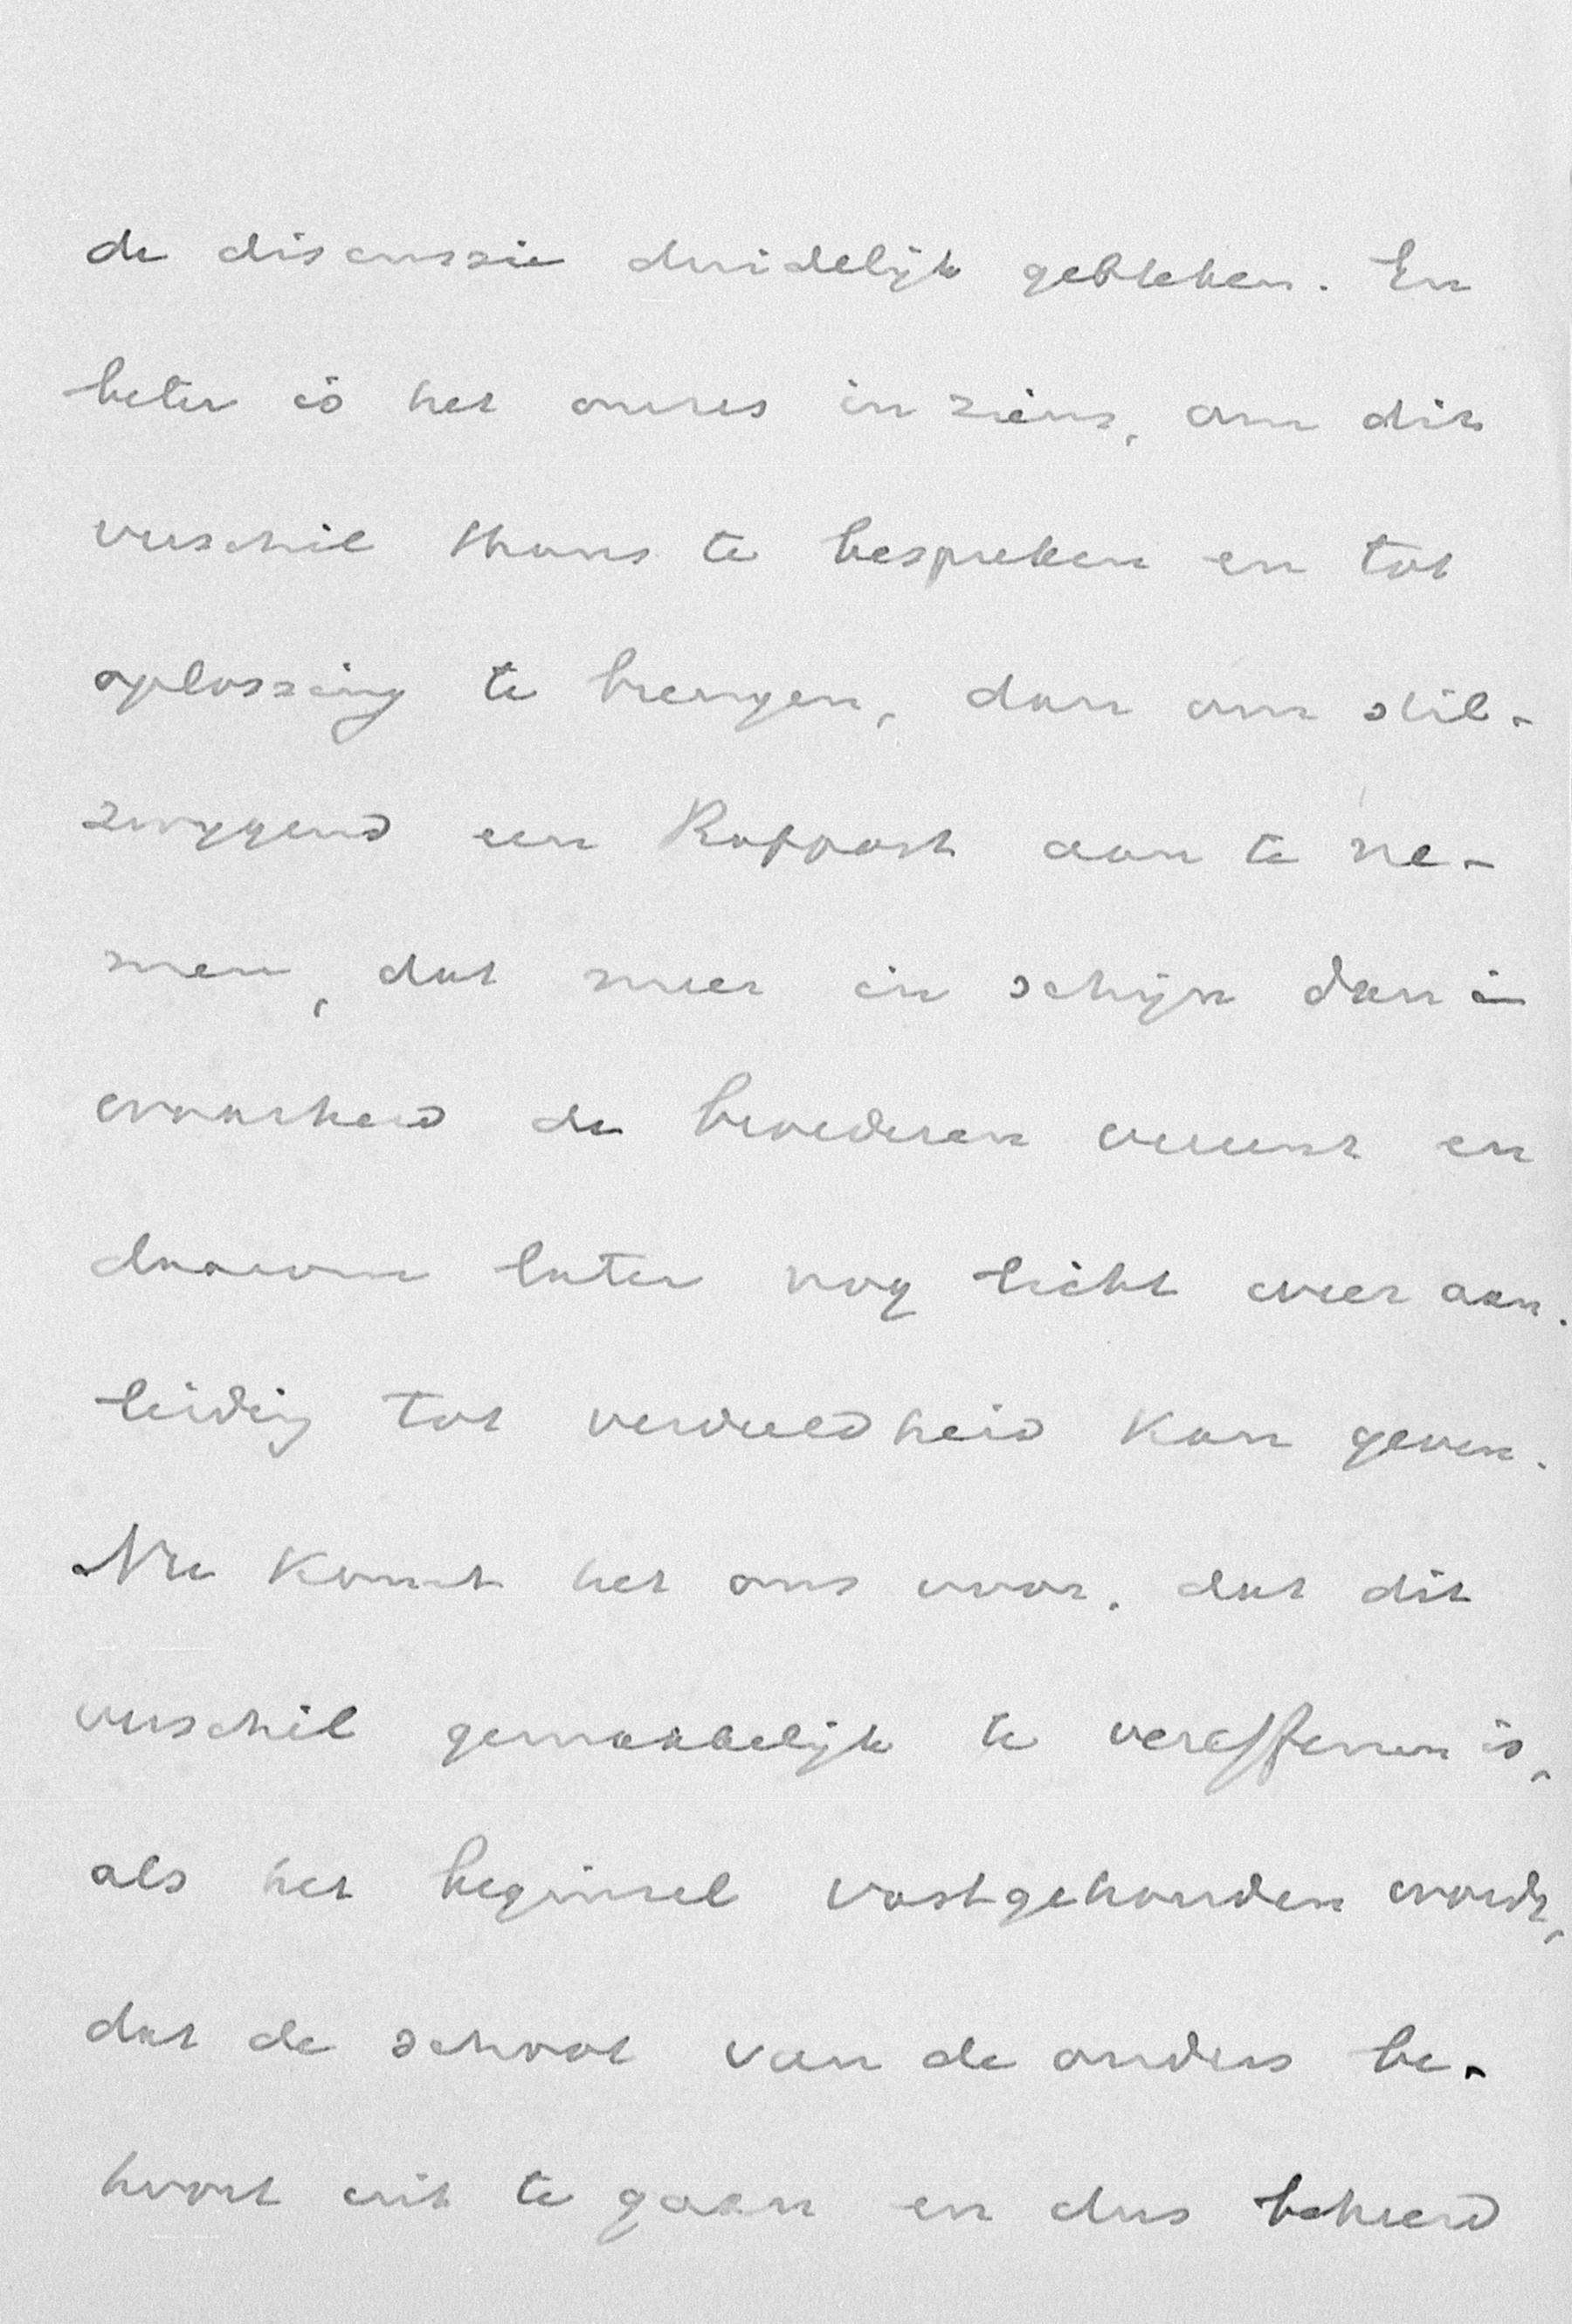 de discussie duidelijk gebleken. En
beter is het onzes inziens, om dit
verschil thans te bespreken en tot
oplossing te brengen, dan om stil-
zwijgend een Rapport aan te ne-
men, dat meer in schijn dan in
waarheid de broederen vereent en
daarom later nog licht weer aan-
leiding tot verdeeldheid kan geven.
Nu komt het ons voor, dat dit
verschil gemakkelijk te vereffenen is,
als het beginsel vastgehouden wordt,
dat de school van de ouders be-
hoort uit te gaan en dus beheerd